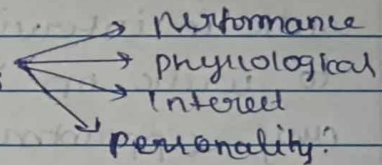 performance
physiological
Interest
personality?